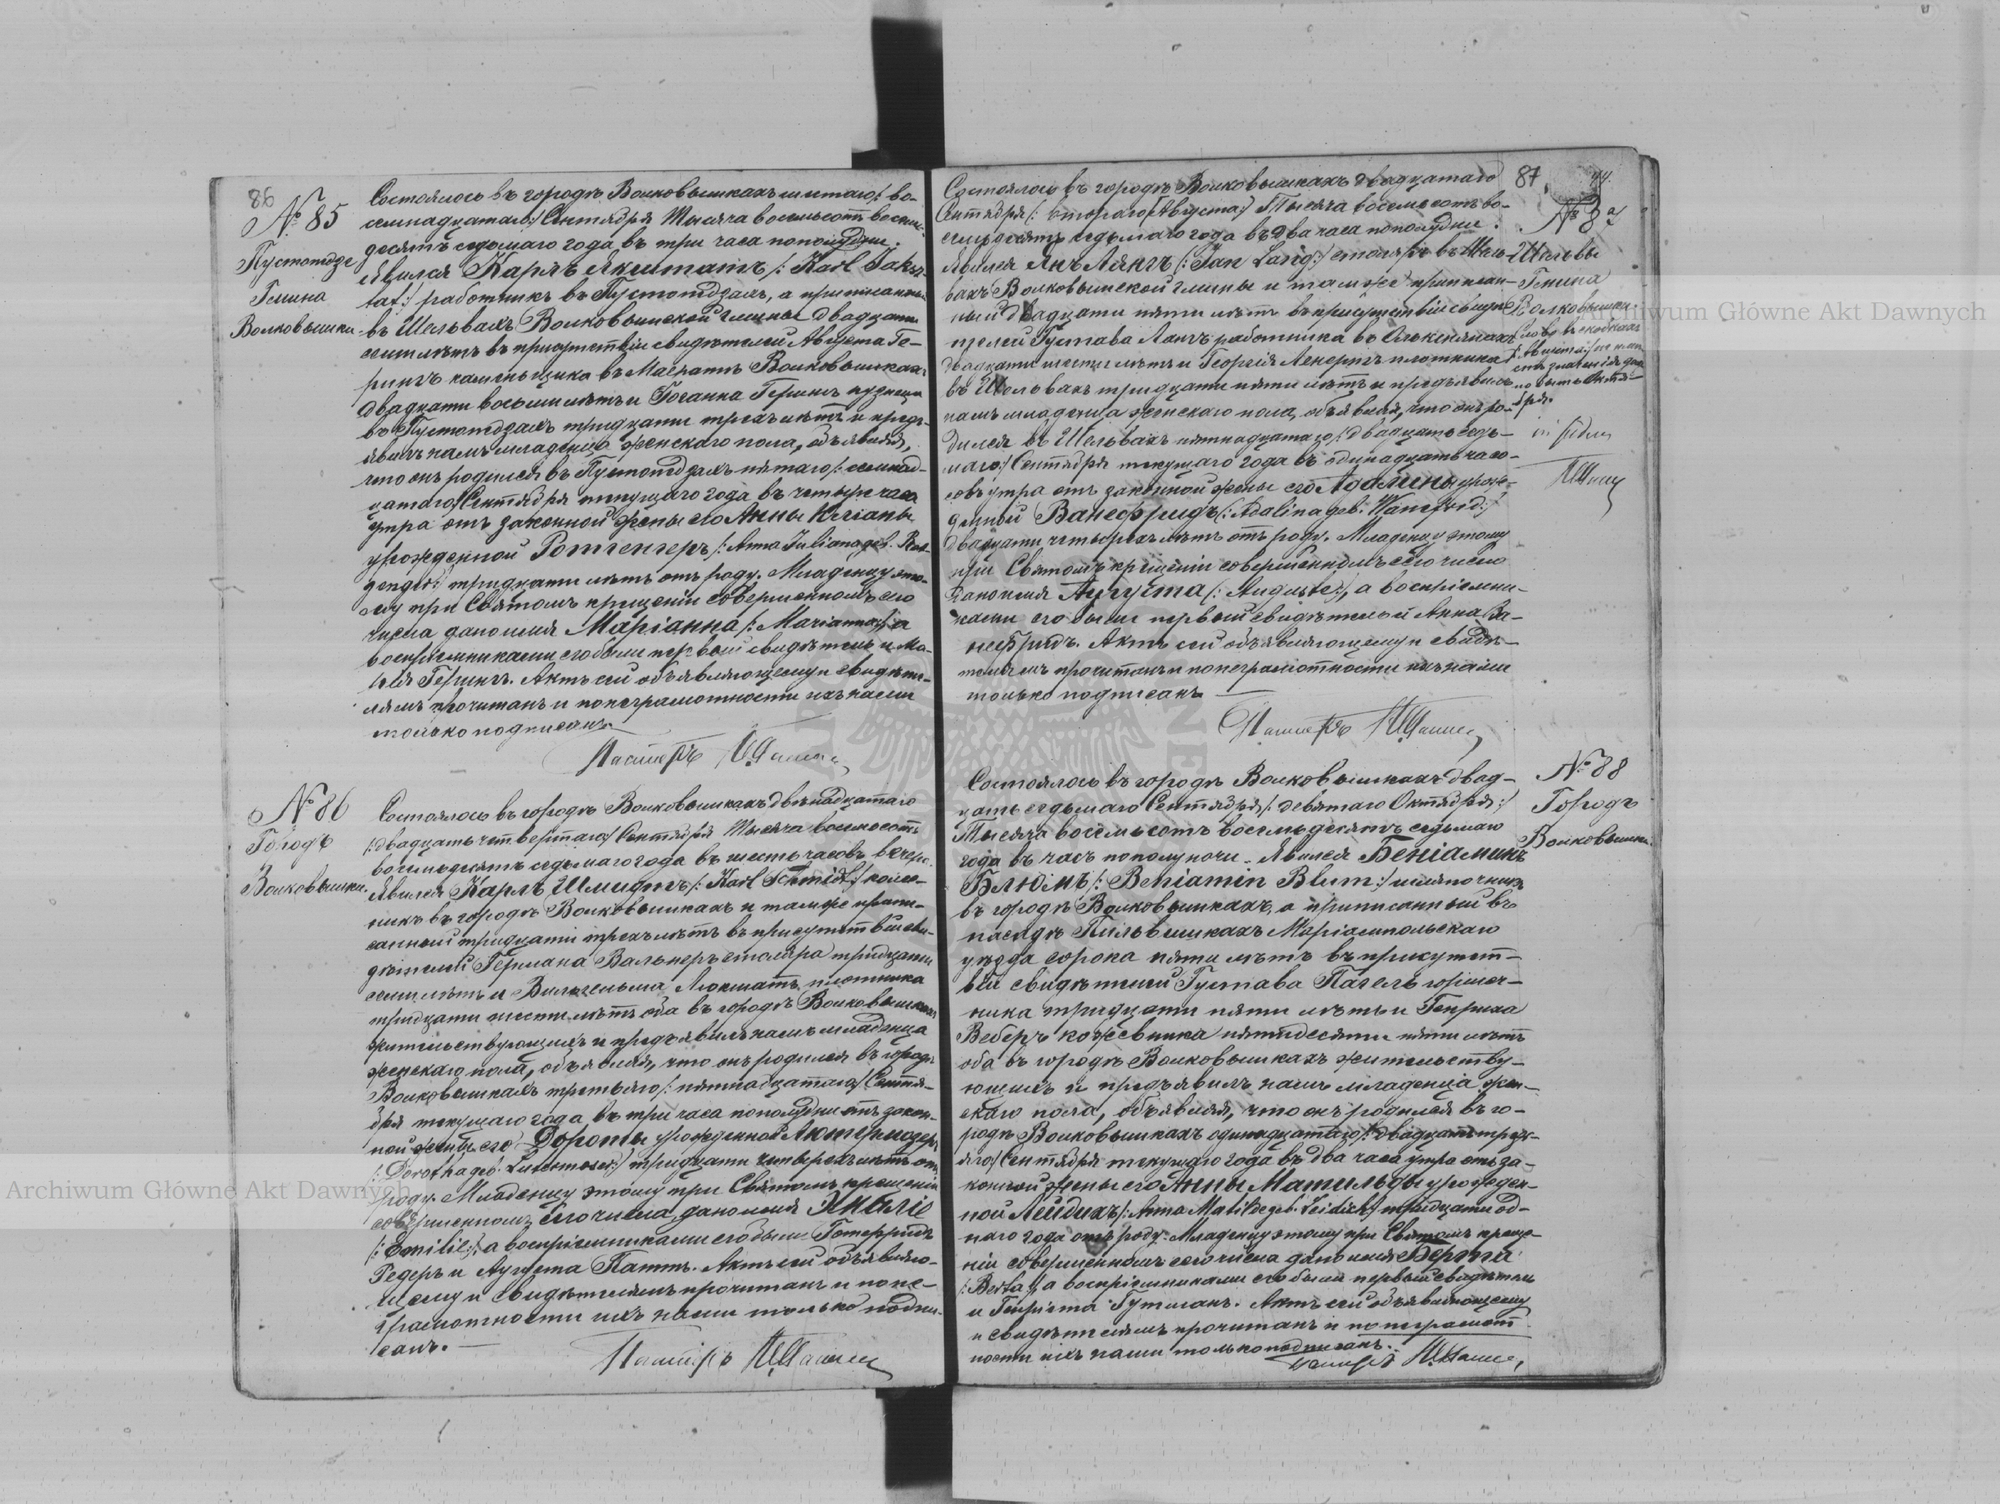 86
№ 85
Пустотдзе
Гмина
Волковышки
Состоялось въ городѣ Волковышкахъ шестаго /: во-
семнадцатаго :/ Сентября Тысяча восемьсотъ восемь-
десятъ седьмаго года въ три часа пополудни.
Явился Карлъ Якштатъ /: Karl Jaksz-
tat :/ работникъ въ Пустотдзахъ, а приписанный
въ Шельвахъ Волковышской гмины двадцати
семи лѣтъ въ присутствіи свидѣтелей Августа Ге-
рингъ каменьщика въ Волковышкахъ
двадцати восьми лѣтъ и Іоганна Герингъ кузнеца
въ Пустотдзахъ тридцати трехъ лѣтъ и предъ-
явилъ намъ младенца женскаго пола, объявляя,
что онъ родился въ Пустотдзахъ пятаго /: семнад-
цатаго :/ Сентября текущаго года въ четыре часа
утра отъ законной жены его Анны Юліаны
урожденной Ротгенгеръ /: Anna Juliana geb. Rot-
genger :/ тридцати лѣтъ отъ роду. Младенцу это-
му при Святомъ крещеніи совершенномъ сего
числа дано имя Маріанна /: Marianna :/ а
воспріемниками его были первый свидѣтель и Ма-
рія Герингъ. Актъ сей объявляющему и свидѣте-
лямъ прочитанъ и по неграмотности ихъ нами
только подписанъ.
Пасторъ
№ 86
Городъ
Волковышки.
Состоялось въ городѣ Волковышкахъ двѣнадцатаго
/: двадцать четвертаго :/ Сентября Тысяча восемьсотъ
восемьдесятъ седьмаго года въ шесть часовъ вечера.
Явился Карлъ Шмидтъ /: Karl Schmidt :/
въ городѣ Волковышкахъ и тамже припи-
санный тридцати трехъ лѣтъ въ присутствіи сви-
дѣтелей Германа Вальнеръ столяра тридцати
семи лѣтъ и Вильгельма плотника
тридцати шести лѣтъ оба въ городѣ Волковышкахъ
жительствующихъ и предъявилъ намъ младенца
женскаго пола, объявляя, что онъ родился въ городѣ
Волковышкахъ третьяго /: пятнадцатаго :/ Сентя-
бря текущаго года въ три часа пополудни отъ закон-
ной жены его Дороты урожденной Лютермозеръ
/: Dorotha geb. Lutermoser :/ тридцати четырехъ лѣтъ отъ
роду. Младенцу этому при Святомъ крещеніи
совершенномъ сего числа дано имя Эмилія
/: Emilie :/ а воспріемниками его были Готфридъ
Редеръ и Аугуста Паттъ. Актъ сей объявляю-
щему и свидѣтелямъ прочитанъ и по не-
грамотности ихъ нами только подпи-
санъ. —
Пасторъ
87.
Состоялось въ городѣ Волковышкахъ двадцатаго
Сентября /: втораго Августа :/ Тысяча восемьсотъ во-
семьдесятъ седьмаго года въ два часа пополудни.
Явился Янъ Лянгъ /: Jan Lang :/ столяръ въ Шель-
вахъ Волковышской гмины и тамже приписан-
ный двадцати пяти лѣтъ въ присутствіи свидѣ-
телей Густава Лангъ работника въ
двадцати шести лѣтъ и Георгія Ленертъ плотника
въ Шельвахъ тридцати пяти лѣтъ и предъявилъ
намъ младенца женскаго пола, объявляя, что онъ ро-
дился въ Шельвахъ пятнадцатаго /: двадцать седь-
маго :/ Сентября текущаго года въ одинадцать часо-
совъ утра отъ законной жены его Адолины урож-
денной Ванефридъ /: Adolina geb. Wanefried :/
двадцати четырехъ лѣтъ отъ роду. Младенцу этому
при Святомъ крещеніи совершенномъ сего числа
дано имя Аугуста /: Auguste :/, а воспріемни-
ками его были первый свидѣтель и Анна Ва-
нефридъ. Актъ сей объявляющему и свидѣ-
телямъ прочитанъ и по неграмотности ихъ нами
только подписанъ. —
Пасторъ
№ 87
Шельвы
Гмина
Волковышки.
Слово въ скобкахъ
/: Августа :/
Октя-
бря.
in fidem
Состоялось въ городѣ Волковышкахъ двад-
цать седьмаго Сентября /: девятаго Октября :/
Тысяча восемьсотъ восемьдесятъ седьмаго
года въ часъ пополуночи. Явился Беніаминъ
Блюмъ /: Beniamin Blum :/ шляпочникъ
въ городѣ Волковышкахъ, а приписанный въ
посадѣ Пильвишкахъ Маріампольскаго
уѣзда сорока пяти лѣтъ въ присутст-
віи свидѣтелей Густава Пагель горшеч-
ника тридцати пяти лѣтъ и Генриха
Веберъ кожевника пятидесяти пяти лѣтъ
оба въ городѣ Волковышкахъ жительству-
ющихъ и предъявилъ намъ младенца жен-
скаго пола, объявляя, что онъ родился въ го-
родѣ Волковышкахъ одинадцатаго /: двадцать треть-
яго :/ Сентября текущаго года въ два часа утра отъ за-
конной жены его Анны Матильды урожден-
ной Лейдихъ /: Anna Matilde geb. Leidich :/ тридцати од-
наго года отъ роду. Младенцу этому при Святомъ креще-
ніи совершенномъ сего числа дано имя Берта
/: Berta :/ а воспріемниками его были первый свидѣтель
и Генріета Гутманъ. Актъ сей объявляющему
и свидѣтелямъ прочитанъ и по неграмот-
ности ихъ нами только подписанъ.
Пасторъ
№ 88
Городъ
Волковышки.
Archiwum Główne Akt Dawnych
Archiwum Główne Akt Dawnych